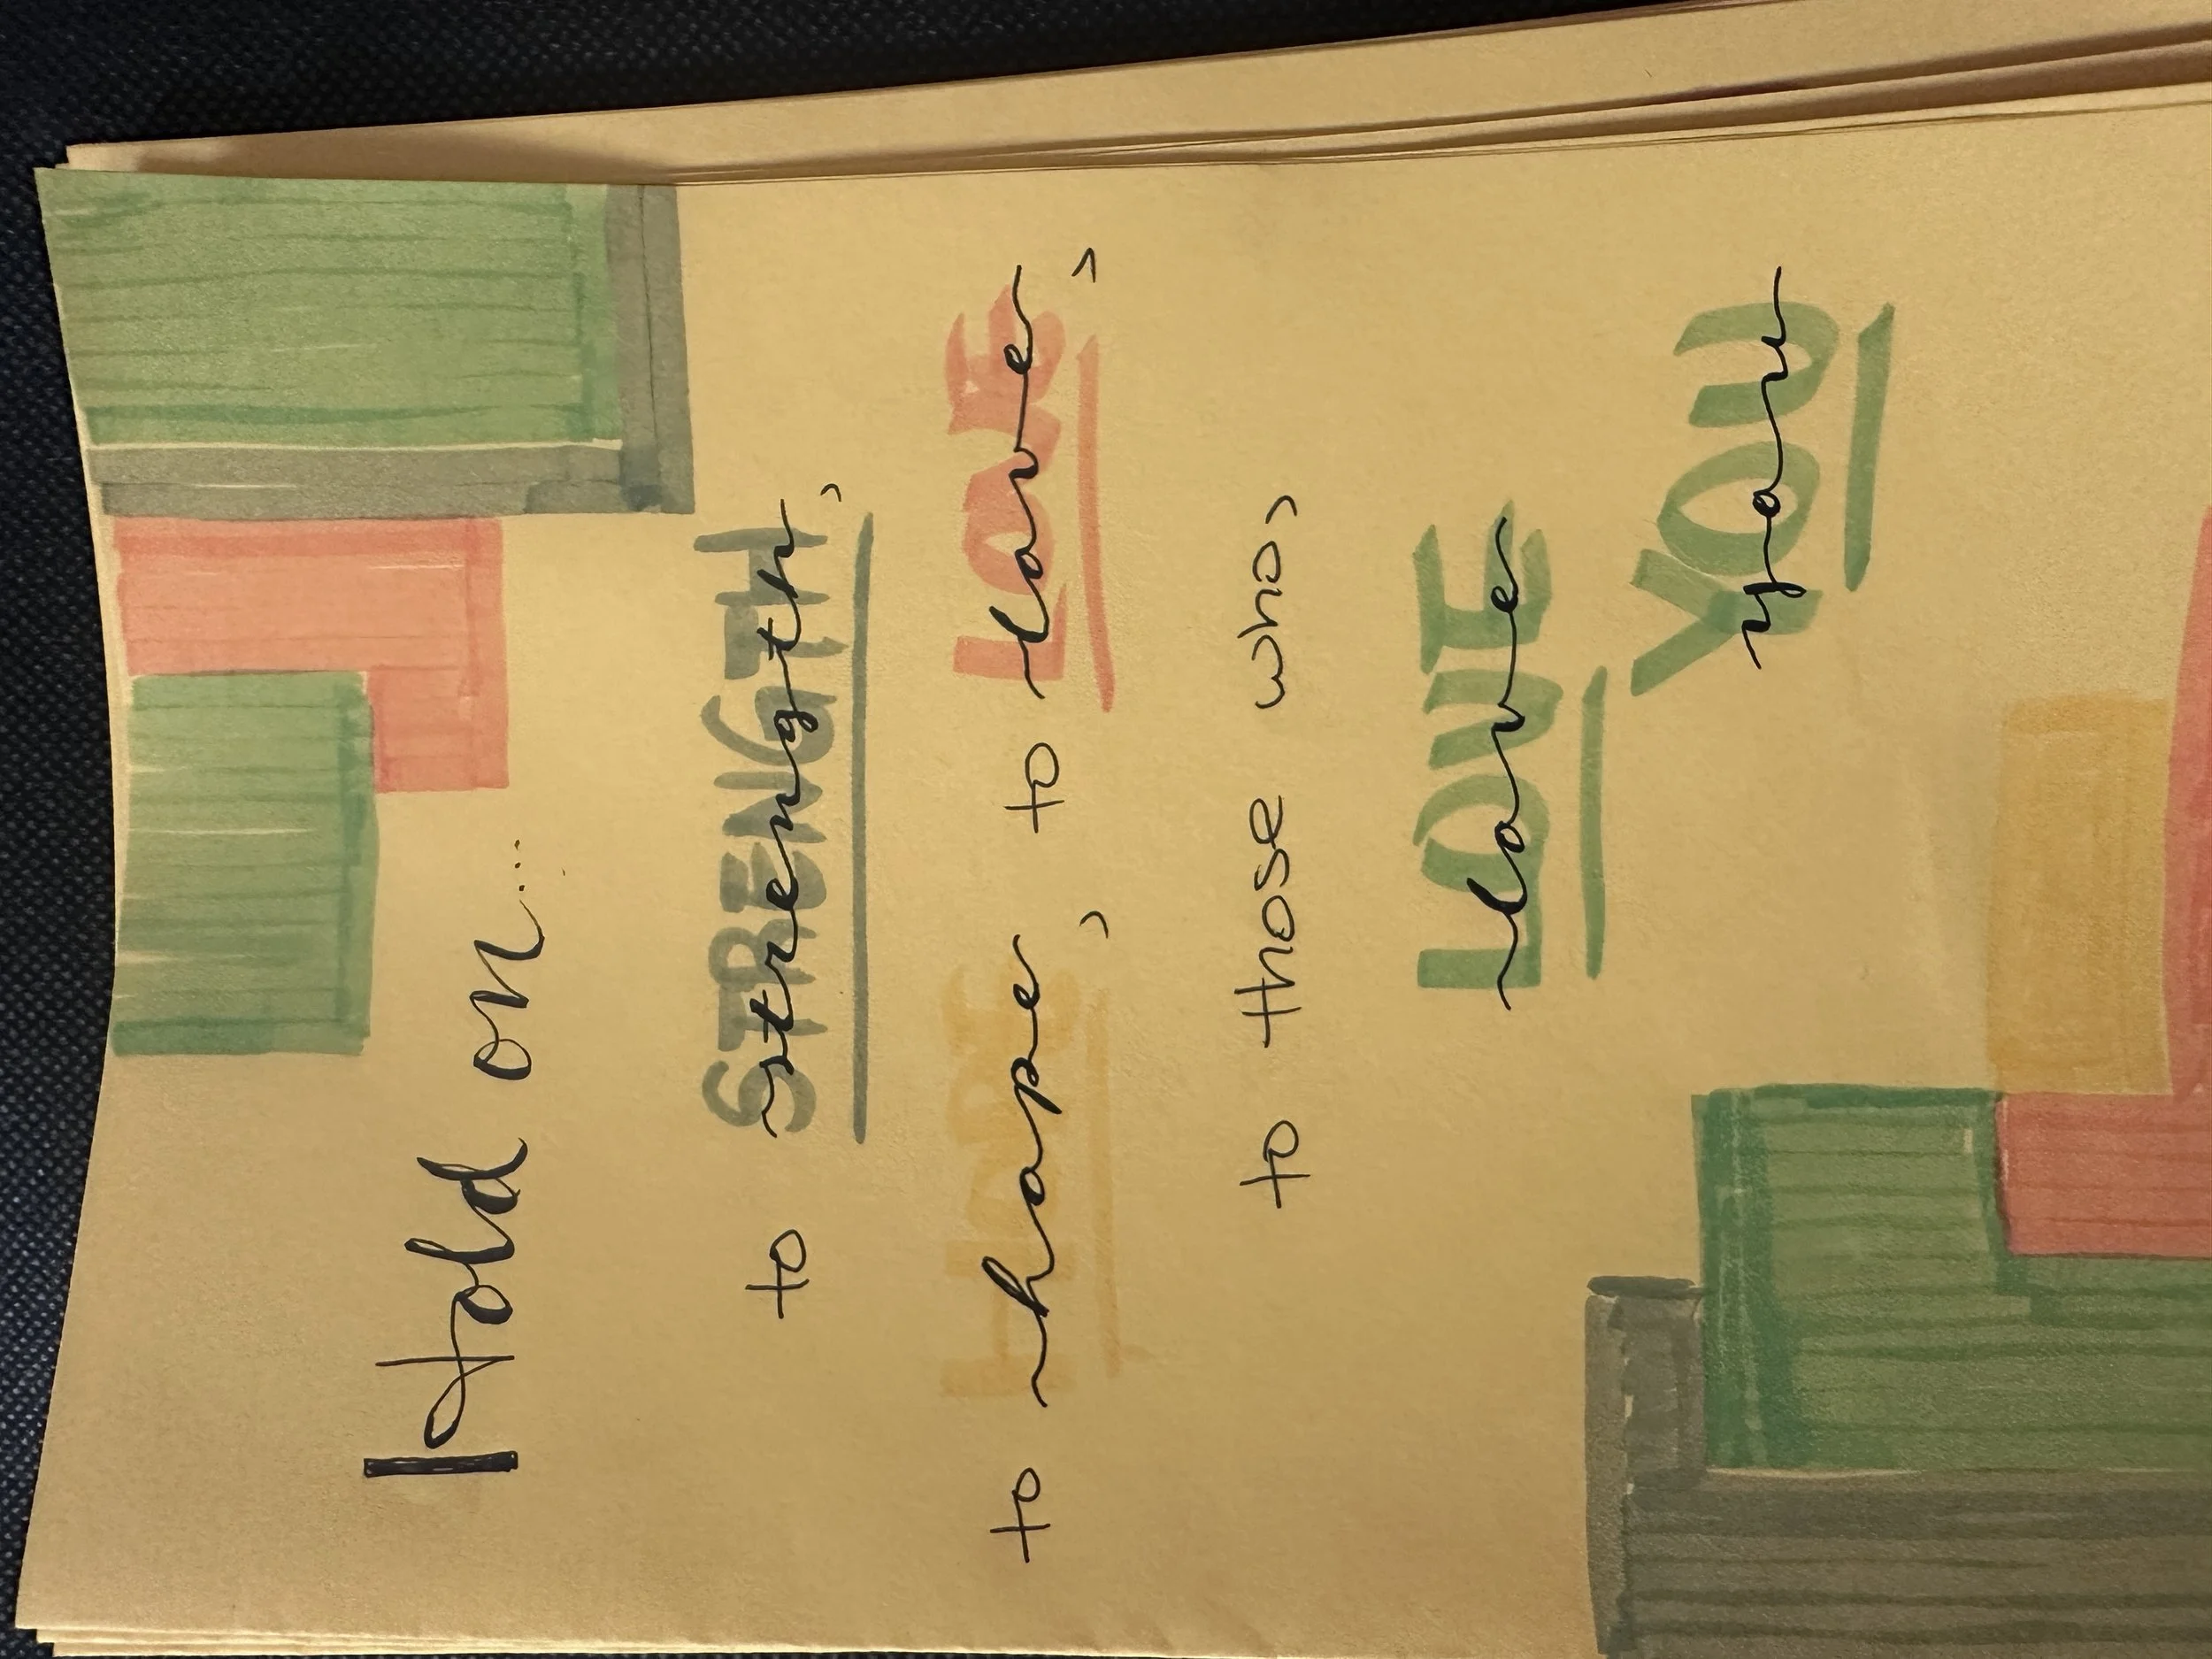 Hold on...
to STRENGTH strength,
to HOPE hope, to LOVE love,
to those who,
LOVE love
YOU you